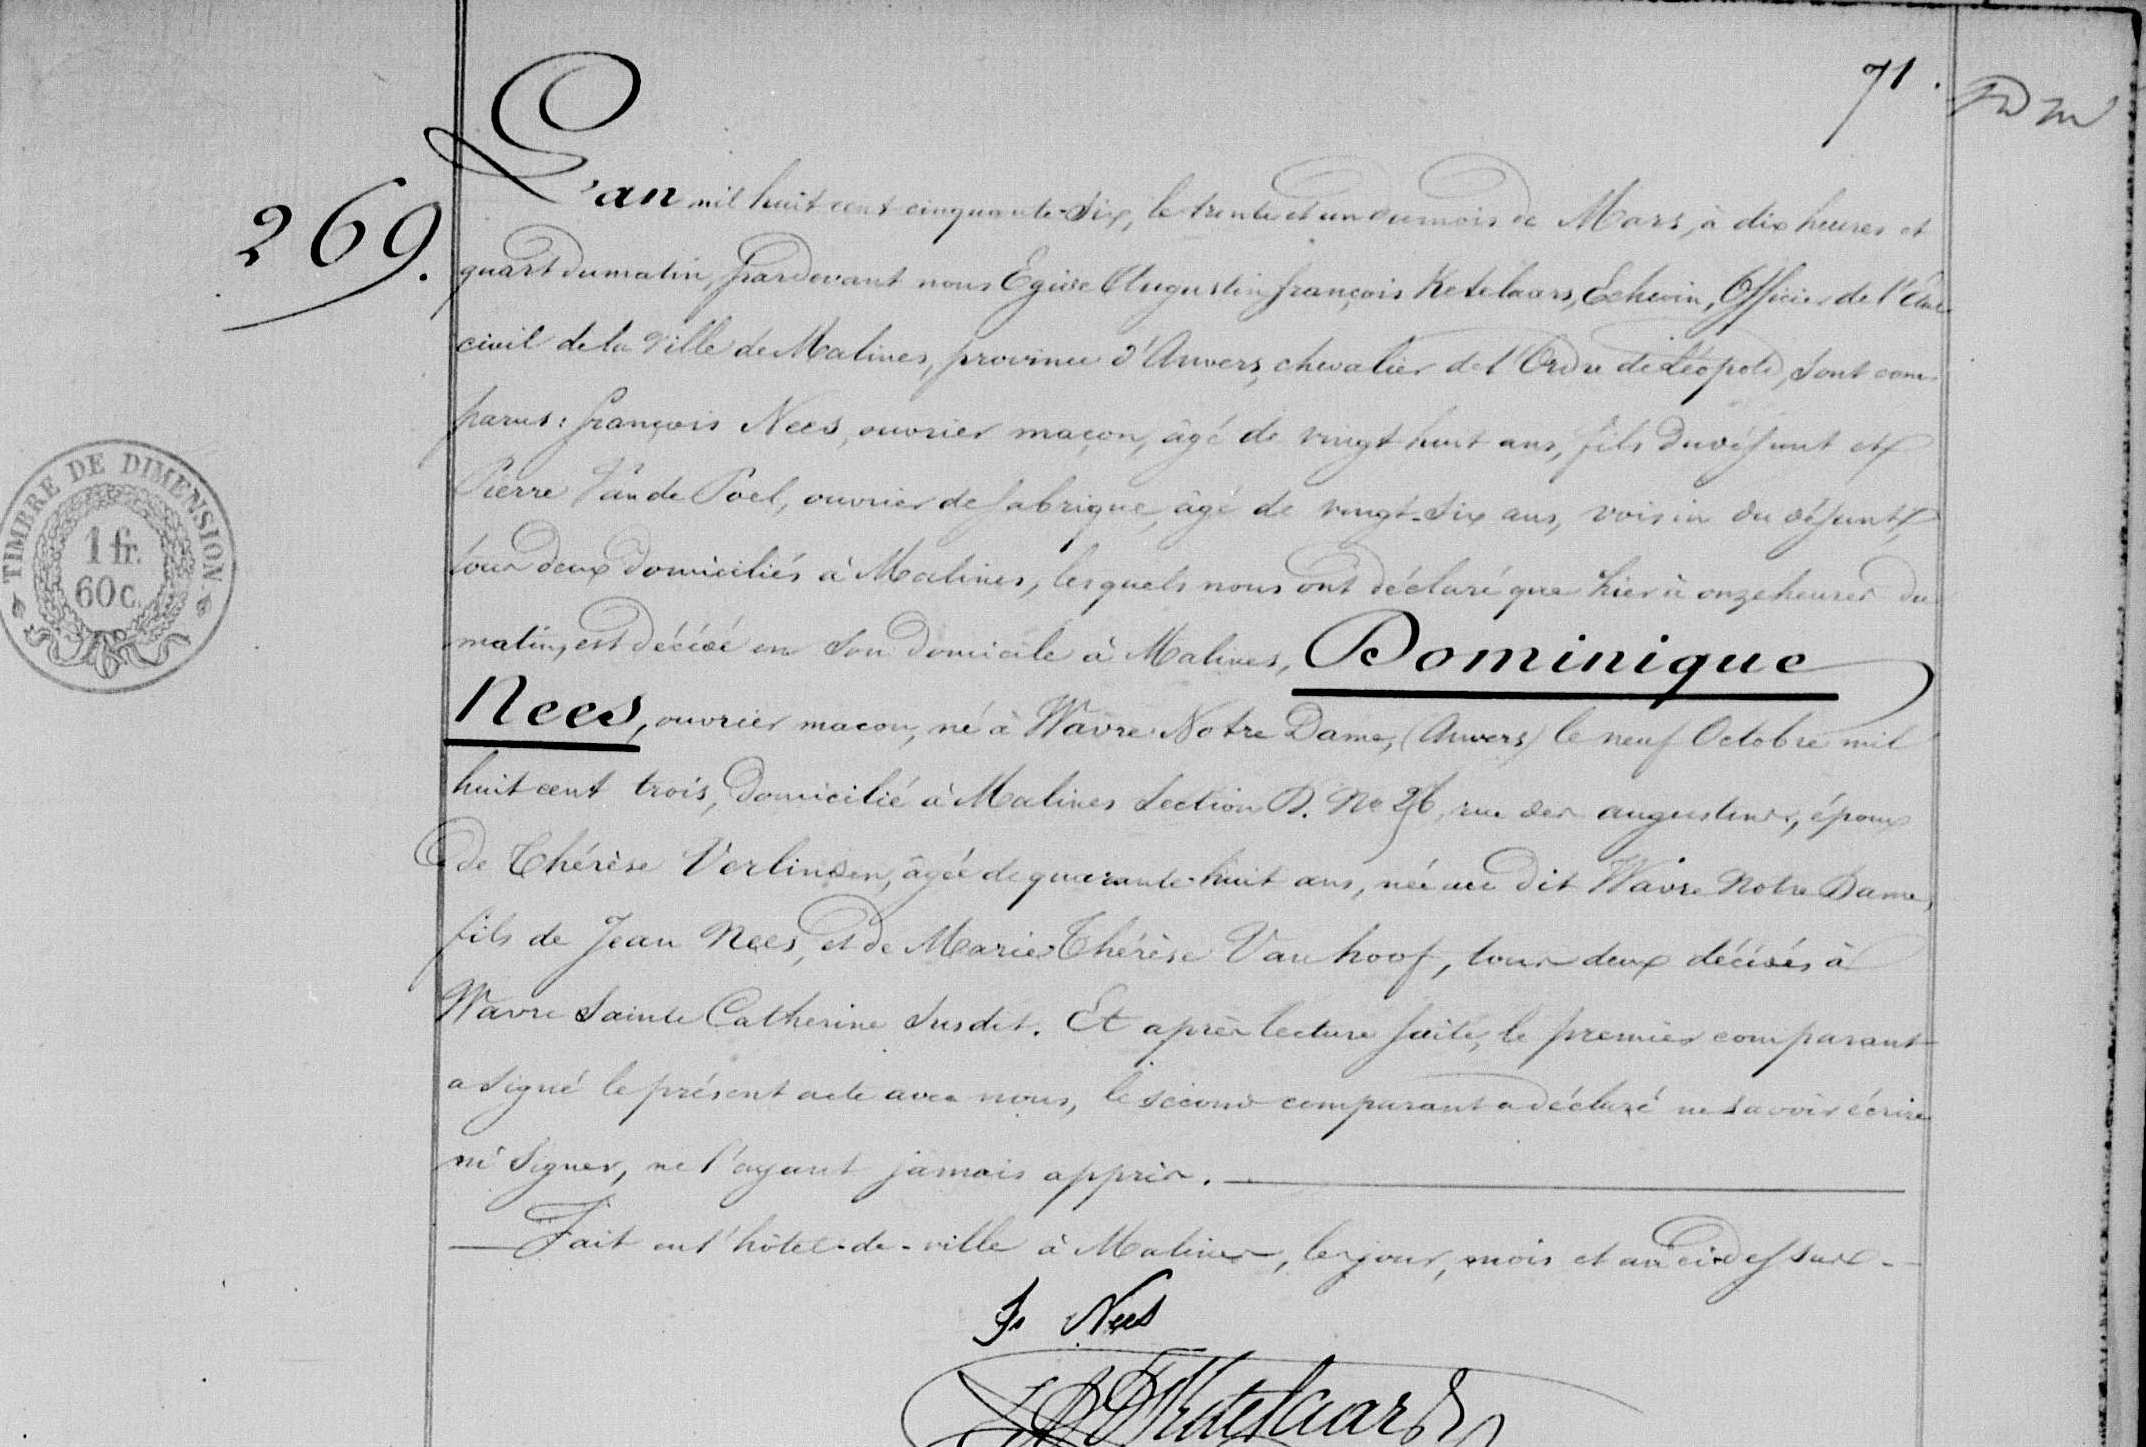 71.
269.
L'an mil huit cent cinquante-six, le trente et un du mois de Mars, à dix heures et
quart du matin, pardevant nous Egide Augustin françois Ketelaars, Echevin, Officier de l'État
civil de la Ville de Malines, province d'Anvers, chevalier de l'Ordre de Léopold, sont com-
parus: françois Nees, ouvrier maçon, âgé de vingt huit ans, fils du défunt et
Pierre Van de Poel, ouvrier de fabrique, âgé de vingt-six ans, voisin du défunt,
tous deux domiciliés à Malines, lesquels nous ont déclaré que hier à onze heures du
matin, est décédé en son domicile à Malines, Dominique
Nees, ouvrier macon, né à Wavre Notre Dame, (Anvers) le neuf Octobre mil
huit cent trois, domicilié à Malines Section D. No 26, rue des augustins, époux
de Thérèse Verlinden, âgée de quarante-huit ans, née au dit Wavre Notre Dame,
fils de Jean Nees, et de Marie Thérèse Van hoof, tous deux décédés à
Wavre Sainte Catherine susdit. Et après lecture faite, le premier comparant
a signé le présent acte avec nous, le second comparant a déclaré ne savoir écrire
ni signer, ne l'ayant jamais appris.
Fait en l'hôtel-de-ville à Malines, les jour, mois et an ci-dessus.
TIMBRE DE DIMENSION
1 fr.
60c.
F. Nees
Ketelaars